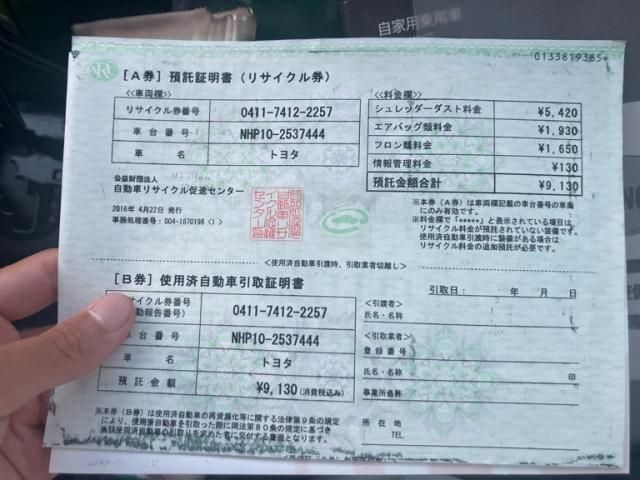 自家用乗用車
0133819385
[A券] 預託証明書 (リサイクル券)
≪車両欄≫
リサイクル券番号 0411-7412-2257
車台番号 NHP10-2537444
車名 トヨタ
≪料金欄≫
シュレッダーダスト料金 ¥5,420
エアバッグ類料金 ¥1,930
フロン類料金 ¥1,650
情報管理料金 ¥130
預託金額合計 ¥9,130
公益財団法人
自動車リサイクル促進センター
2016年 4月22日 発行
事務処理番号:004-1870198
※本券(A券)は車両欄記載の車台番号の車両
にのみ有効です。
※料金欄で「*****」と表示されている項目は
リサイクル料金が預託されていない装備です。
使用済自動車引渡時に装備がある場合は
リサイクル料金の追加預託が必要です。
<使用済自動車引渡時、引取業者切離し>
[B券] 使用済自動車引取証明書
サイクル券番号
動報告番号) 0411-7412-2257
台番号 NHP10-2537444
車名 トヨタ
預託金額 ¥9,130 (消費税込み)
※本券(B券)は使用済自動車の再資源化等に関する法律第9条の規定
により、使用済自動車を引取った際に同法第80条の規定に基づき
当該使用済自動車の引取りを求めた者に交付する書面となります。
引取日: 年 月 日
<引渡者>
氏名・名称
<引取業者>
登録番号
氏名・名称 印
事業所名称
所在地
TEL.